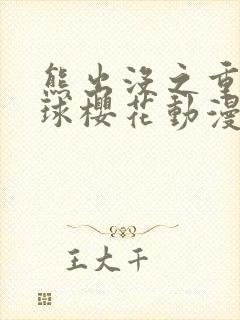 熊出没之重
球樱花動漫
王大千